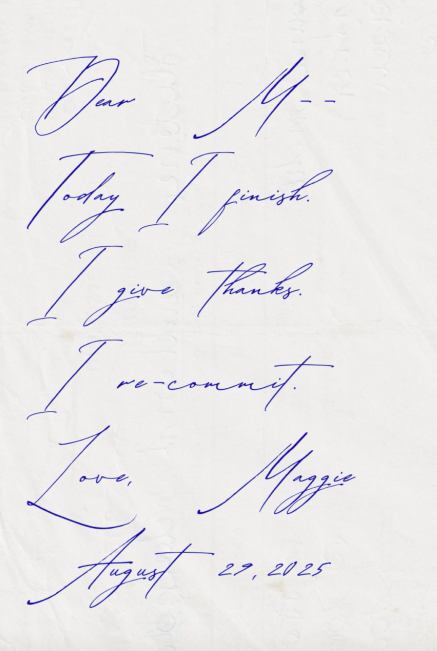 Dear M--
Today I finish.
I give thanks.
I re-commit.
Love, Maggie
August 29, 2025